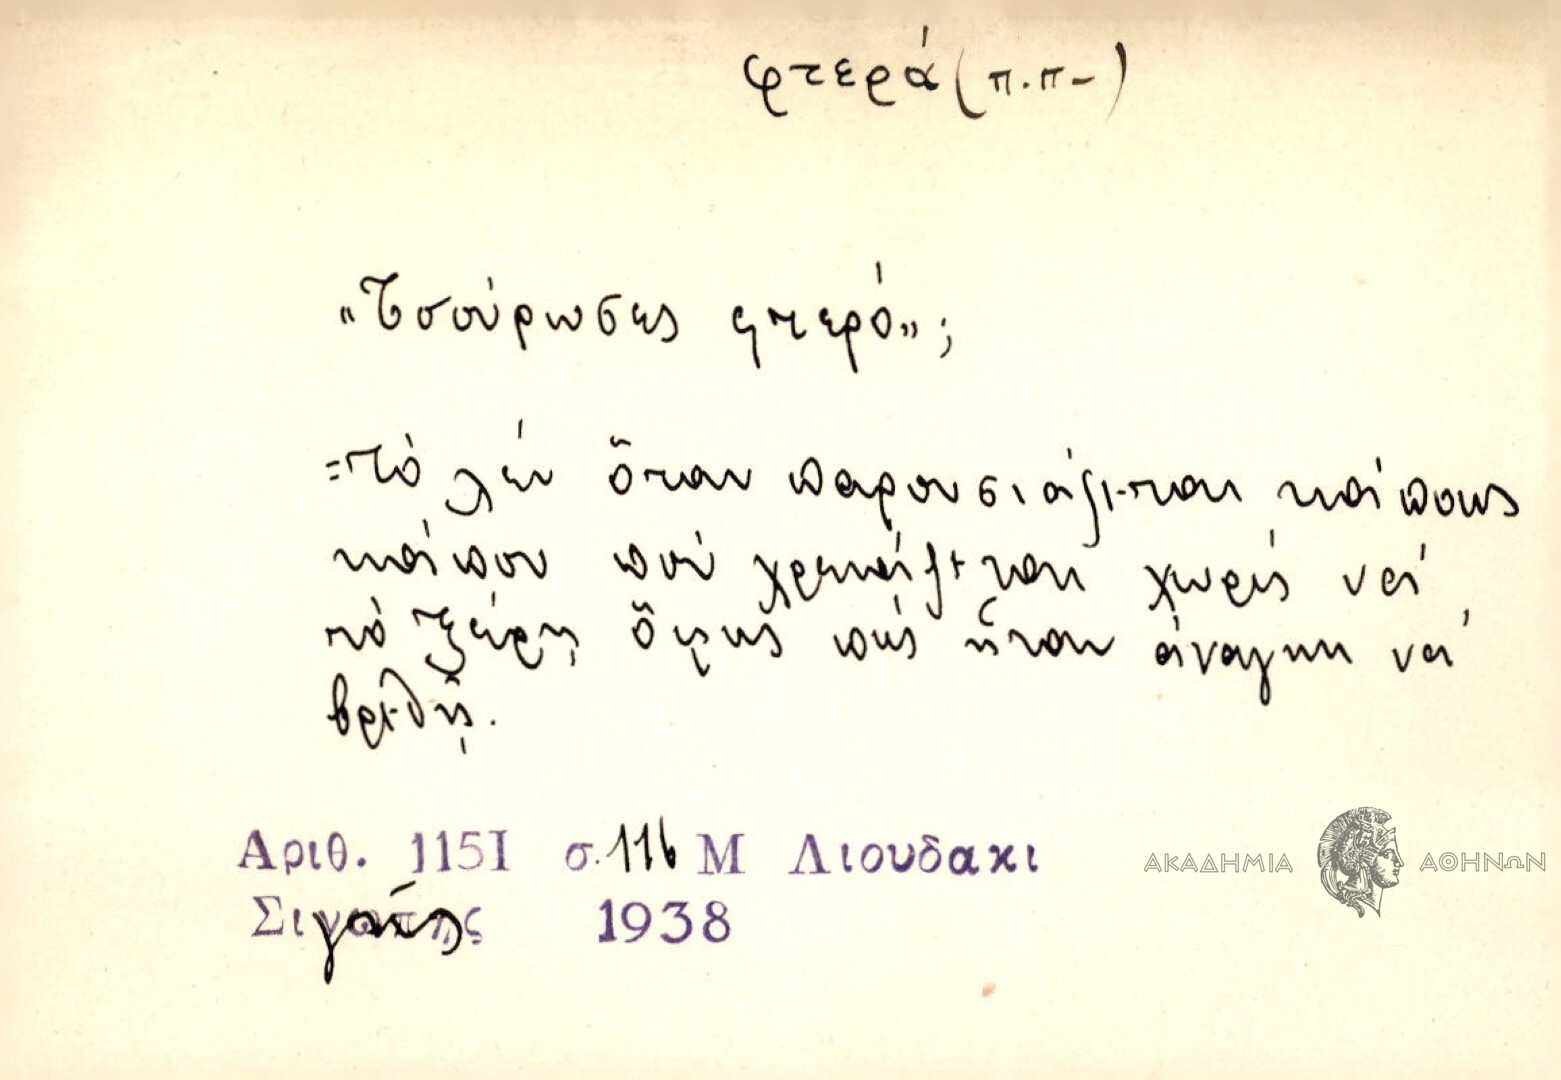 φτερά (π.π-)
«Τσούρωσες φτερό»;
=Τὸ λέν ὅταν παρουσιάζεται κάποιος
κάπου πού χρειάζεται χωρίς νά
τὸ ξέρῃ ὅμως πώς ἦταν ἀνάγκη νά
βρεθῇ.
Αριθ. 1151 σ. 116 Μ Λιουδακι
1938
ΑΚΑΔΗΜΙΑ ΑΘΗΝΩΝ